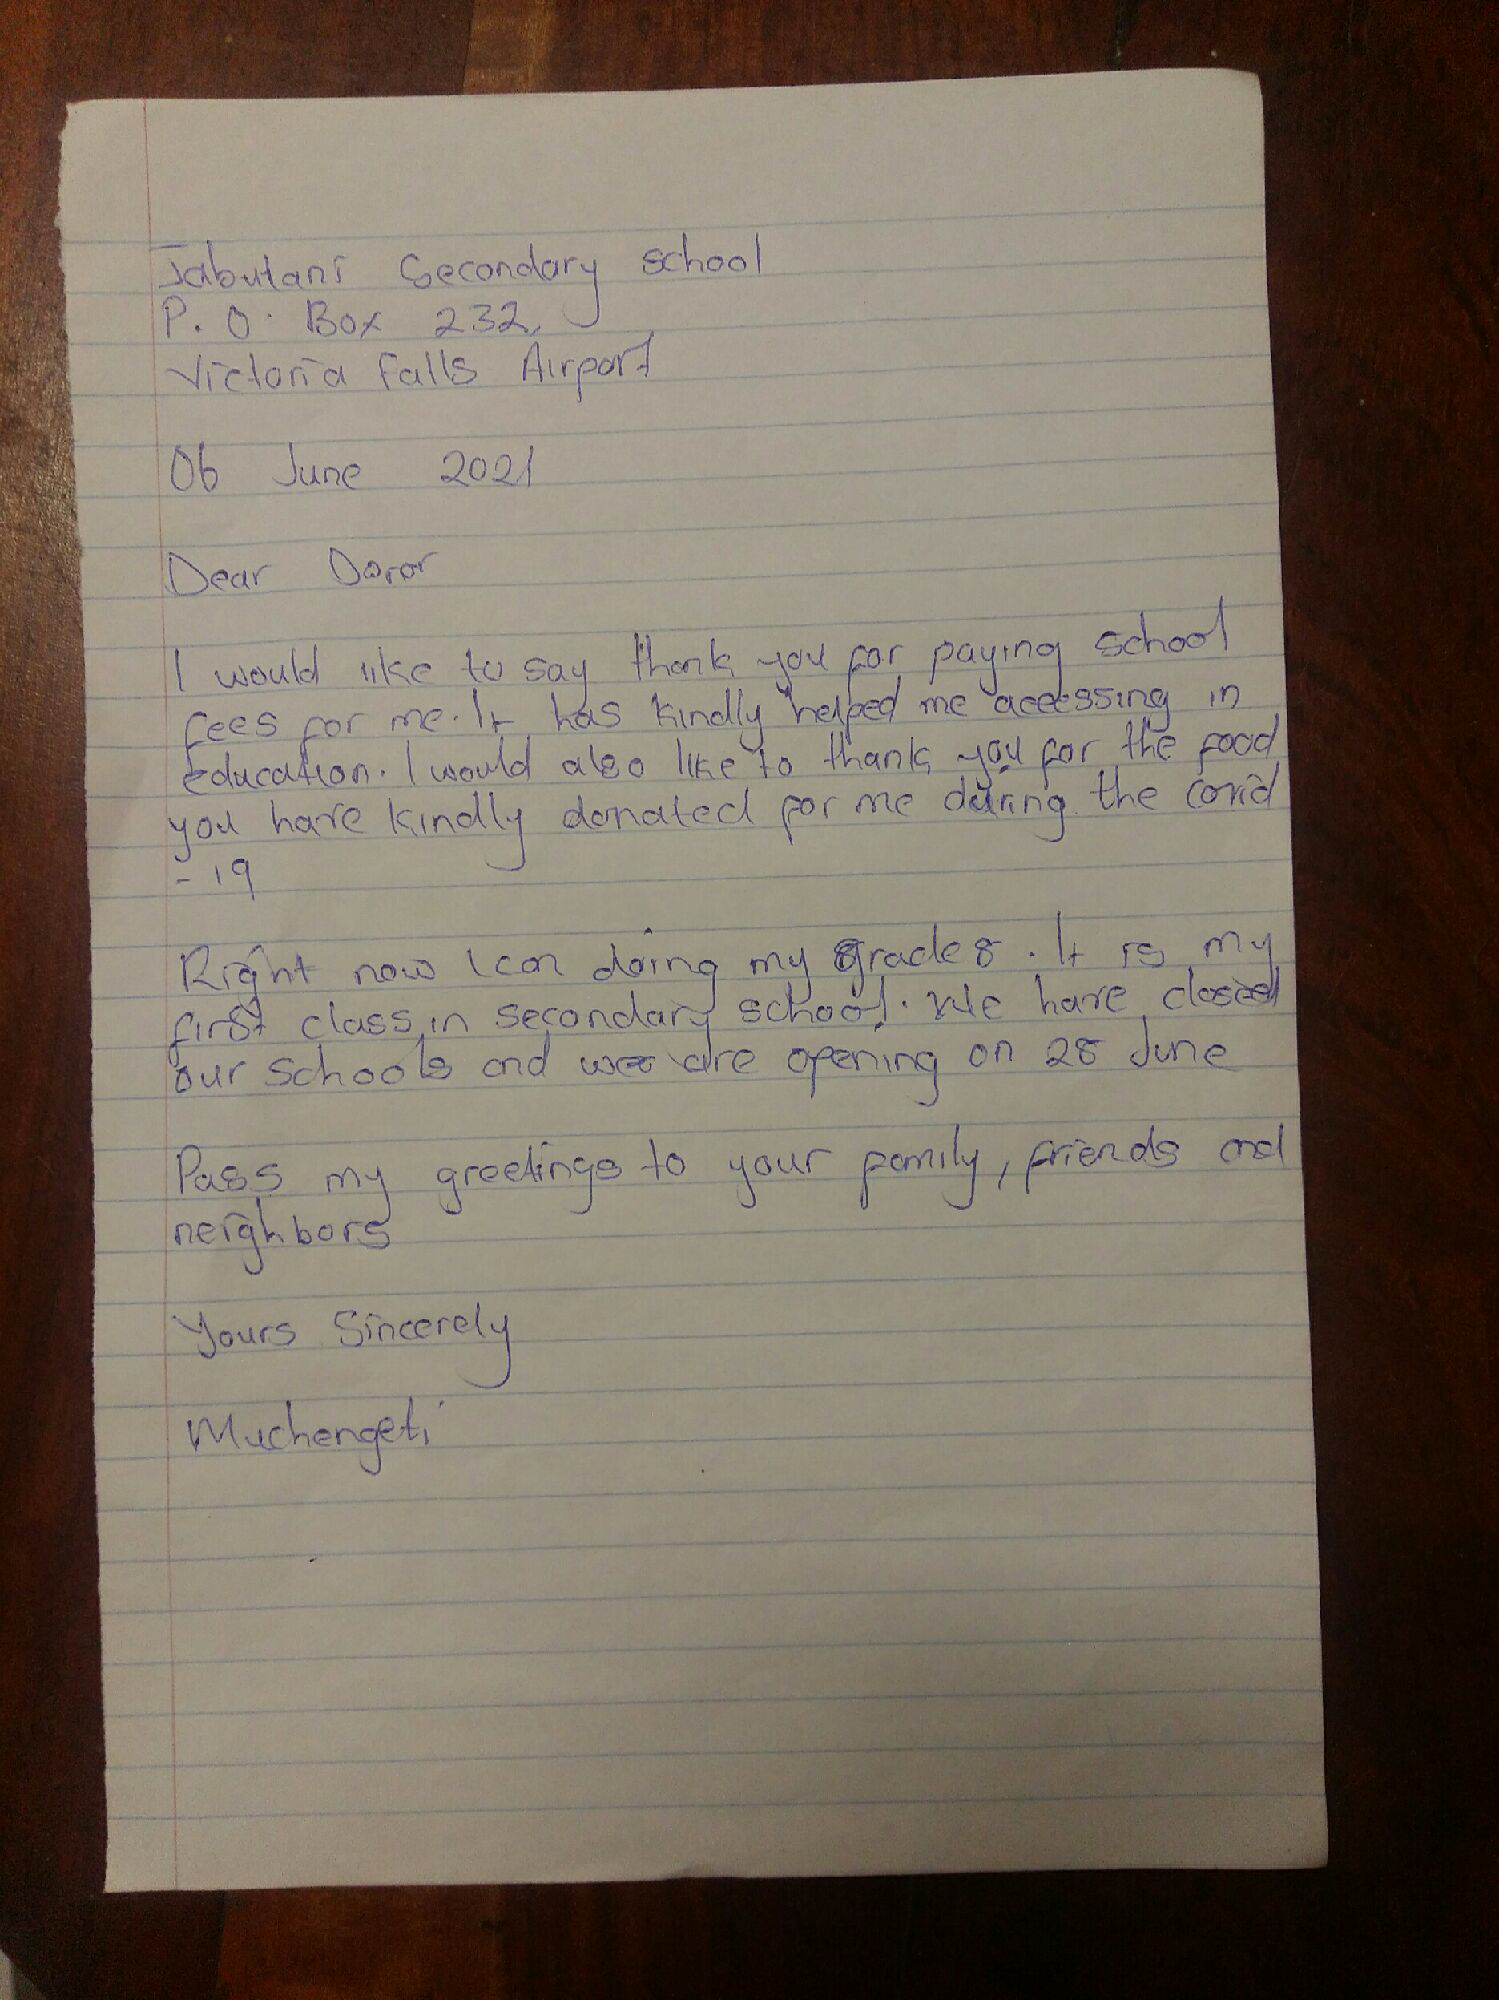 Jabulani Secondary school
P. O. Box 232,
Victoria Falls Airport
06 June 2021
Dear Donor
I would like to say thank you for paying school
fees for me. It has kindly helped me accessing in
education. I would also like to thank you for the food
you have kindly donated for me during the covid
- 19
Right now I can doing my grade 8. It is my
first class in secondary school. We have closed
our schools and we are opening on 28 June
Pass my greetings to your family, friends and
neighbors
Yours Sincerely
Muchengeti